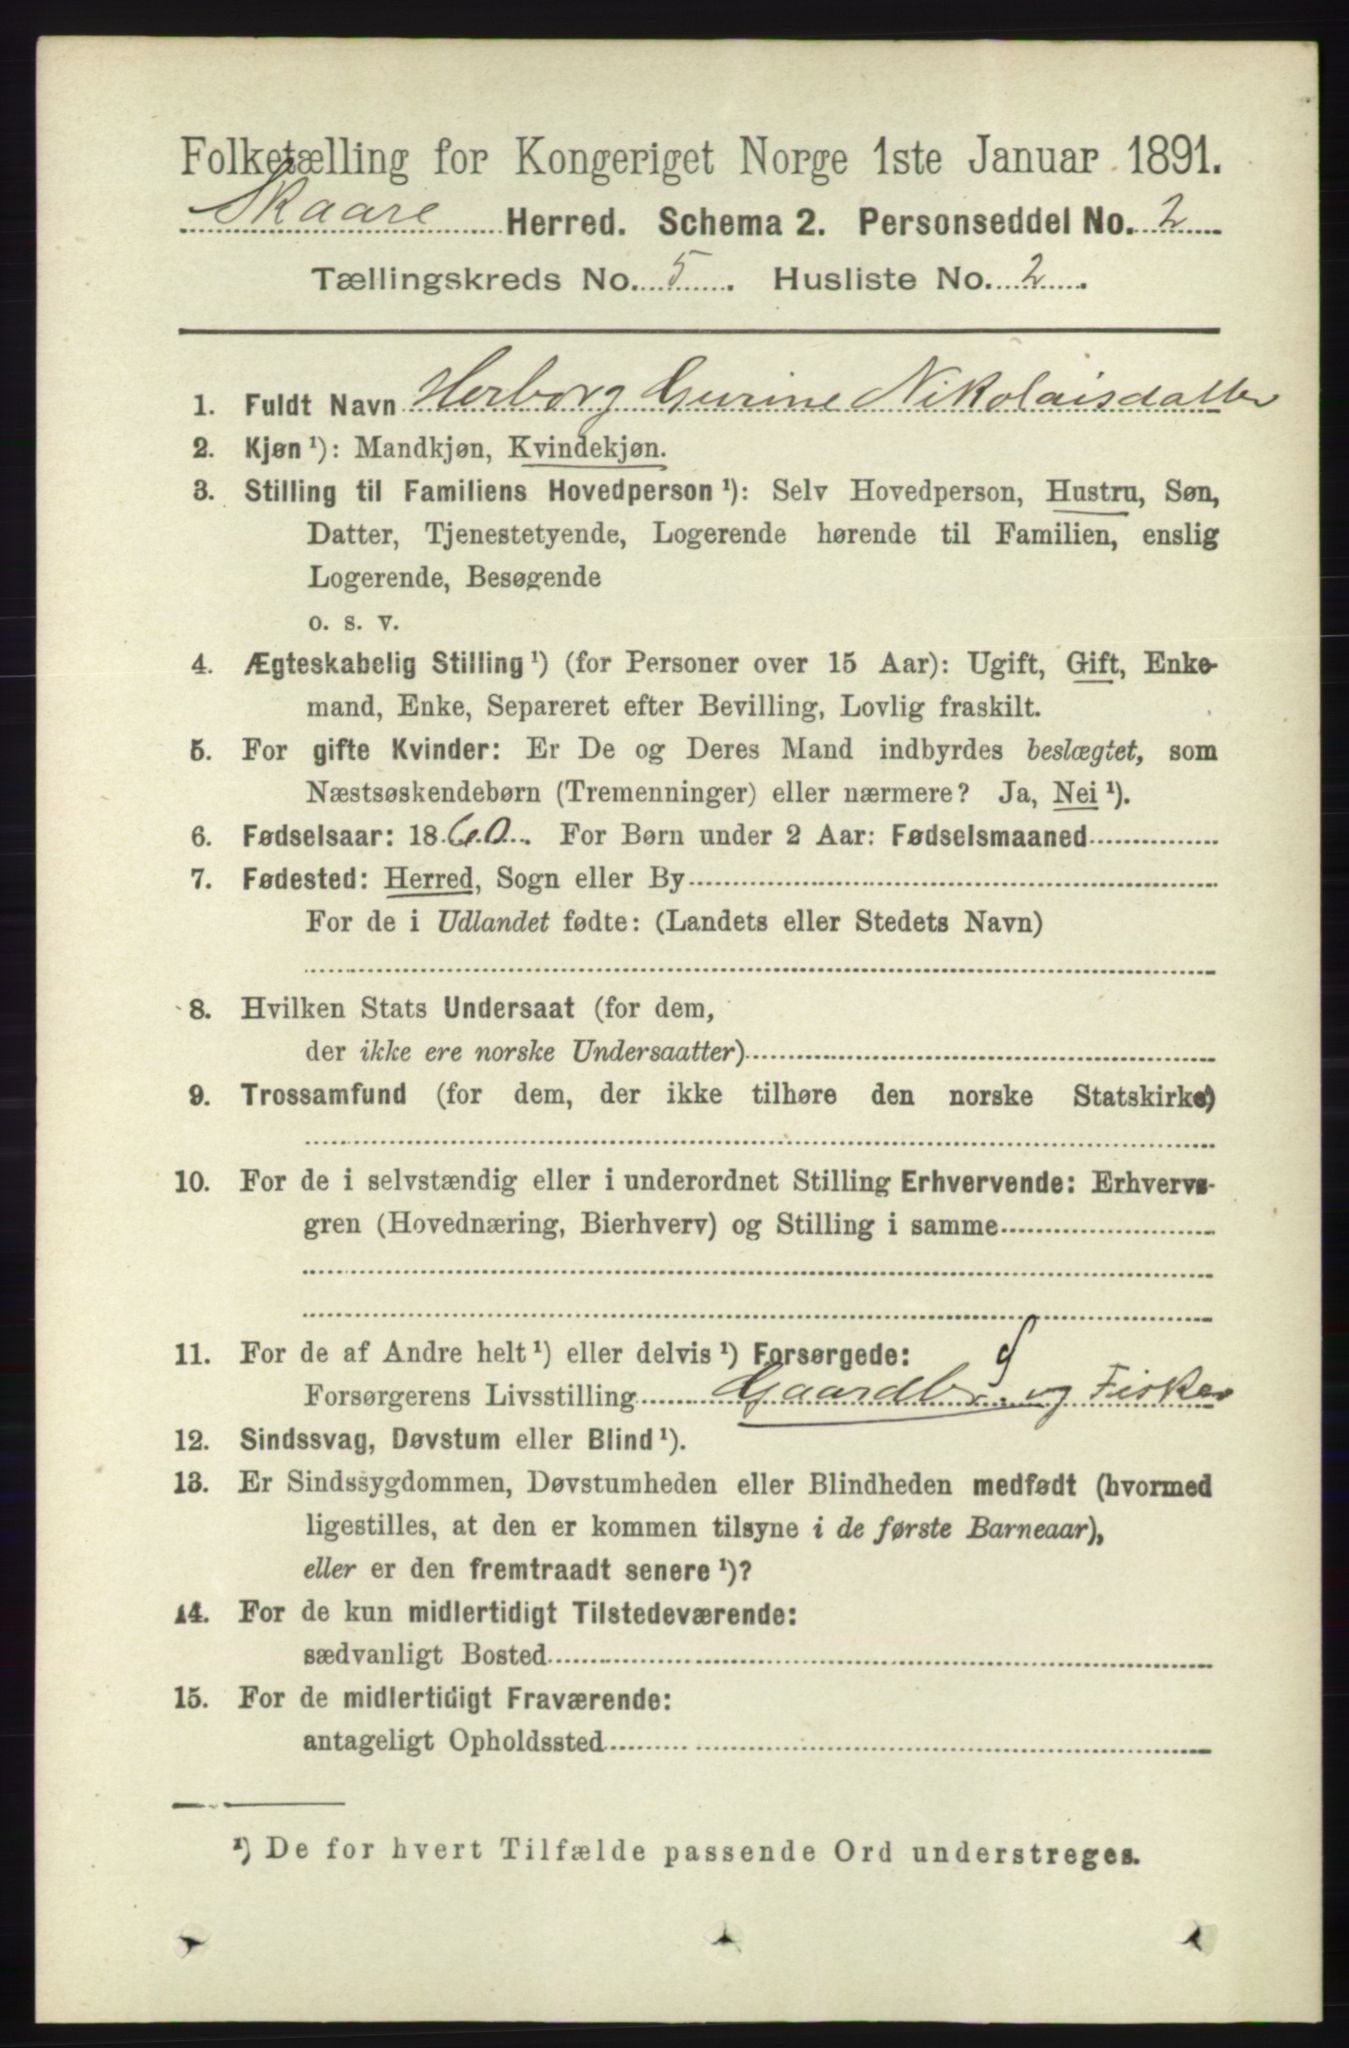 Folketælling for Kongeriget Norge 1ste Januar 1891.
Skaare Herred. Schema 2. Personseddel No. 2
Tællingskreds No. 5. Husliste No. 2.
1. Fuldt Navn Herborg Gurine Nikolaisdatter
2. Kjøn¹): Mandkjøn, Kvindekjøn.
3. Stilling til Familiens Hovedperson¹): Selv Hovedperson, Hustru, Søn,
Datter, Tjenestetyende, Logerende hørende til Familien, enslig
Logerende, Besøgende
o. s. v.
4. Ægteskabelig Stilling¹) (for Personer over 15 Aar): Ugift, Gift, Enke-
mand, Enke, Separeret efter Bevilling, Lovlig fraskilt.
5. For gifte Kvinder: Er De og Deres Mand indbyrdes beslægtet, som
Næstsøskendebørn (Tremenninger) eller nærmere? Ja, Nei¹).
6. Fødselsaar: 1860. For Børn under 2 Aar: Fødselsmaaned
7. Fødested: Herred, Sogn eller By
For de i Udlandet fødte: (Landets eller Stedets Navn)
8. Hvilken Stats Undersaat (for dem,
der ikke ere norske Undersaatter)
9. Trossamfund (for dem, der ikke tilhøre den norske Statskirke)
10. For de i selvstændig eller i underordnet Stilling Erhvervende: Erhvervs-
gren (Hovednæring, Bierhverv) og Stilling i samme
11. For de af Andre helt¹) eller delvis¹) Forsørgede:
Forsørgerens Livsstilling Gaardbr. og Fisker
12. Sindssvag, Døvstum eller Blind¹).
13. Er Sindssygdommen, Døvstumheden eller Blindheden medfødt (hvormed
ligestilles, at den er kommen tilsyne i de første Barneaar),
eller er den fremtraadt senere¹)?
14. For de kun midlertidigt Tilstedeværende:
sædvanligt Bosted
15. For de midlertidigt Fraværende:
antageligt Opholdssted
¹) De for hvert Tilfælde passende Ord understreges.